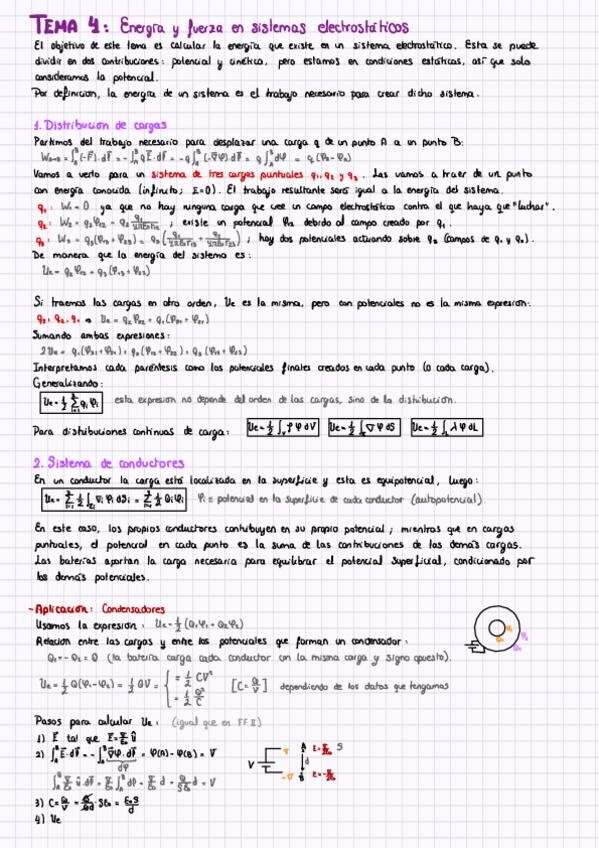 TEMA 4: Energía y fuerza en sistemas electrostáticos
El objetivo de este tema es calcular la energía que existe en un sistema electrostático. Esta se puede
dividir en dos contribuciones: potencial y cinética, pero estamos en condiciones estáticas, así que solo
consideramos la potencial.
Por definición, la energía de un sistema es el trabajo necesario para crear dicho sistema.
1. Distribución de cargas
Partimos del trabajo necesario para desplazar una carga q de un punto A a un punto B:
W_A→B = ∫_A^B (-F)·dr = -∫_A^B qE·dr = -q∫_A^B (-∇φ)·dr = q∫_A^B dφ = q(φ_B - φ_A)
Vamos a verlo para un sistema de tres cargas puntuales q₁, q₂ y q₃. Las vamos a traer de un punto
con energía conocida (infinito; E=0). El trabajo resultante será igual a la energía del sistema.
q₁: W₁ = 0 ya que no hay ninguna carga que cree un campo electrostático contra el que haya que "luchar".
q₂: W₂ = q₂φ₁₂ = q₂ q₁/4πε₀r₁₂ ; existe un potencial φ₁₂ debido al campo creado por q₁.
q₃: W₃ = q₃(φ₁₃ + φ₂₃) = q₃(q₁/4πε₀r₁₃ + q₂/4πε₀r₂₃) ; hay dos potenciales actuando sobre q₃ (campos de q₁ y q₂).
De manera que la energía del sistema es:
Ue = q₂φ₁₂ + q₃(φ₁₃ + φ₂₃)
Si traemos las cargas en otro orden, Ue es la misma, pero con potenciales no es la misma expresión:
q₃, q₂, q₁ → Ue = q₂φ₃₂ + q₁(φ₃₁ + φ₂₁)
Sumando ambas expresiones:
2Ue = q₁(φ₂₁ + φ₃₁) + q₂(φ₁₂ + φ₃₂) + q₃(φ₁₃ + φ₂₃)
Interpretamos cada paréntesis como los potenciales finales creados en cada punto (o cada carga).
Generalizando:
Ue = ½ Σ qᵢφᵢ esta expresión no depende del orden de las cargas, sino de la distribución.
Para distribuciones continuas de carga: Ue = ½∫_V ρφdV Ue = ½∫_S σφdS Ue = ½∫_L λφdL
2. Sistema de conductores
En un conductor la carga está localizada en la superficie y esta es equipotencial, luego:
Ue = Σ ½∫ σᵢφᵢdSᵢ = Σ ½ Qᵢφᵢ φᵢ = potencial en la superficie de cada conductor (autopotencial).
En este caso, los propios conductores contribuyen en su propio potencial; mientras que en cargas
puntuales, el potencial en cada punto es la suma de las contribuciones de las demás cargas.
Las baterías aportan la carga necesaria para equilibrar el potencial superficial, condicionado por
los demás potenciales.
- Aplicación: Condensadores
Usamos la expresión: Ue = ½(Q₁φ₁ + Q₂φ₂)
Relación entre las cargas y entre los potenciales que forman un condensador:
Q₁ = -Q₂ = Q (la batería carga cada conductor con la misma carga y signo opuesto).
Ue = ½Q(φ₁ - φ₂) = ½QV = { = ½CV² = ½ Q²/C [C = Q/V] dependiendo de los datos que tengamos
Pasos para calcular Ue: (igual que en FFII)
1) E tal que E = σ/ε₀ û
2) ∫_A^B E·dr = -∫_A^B ∇φ·dr = φ(A) - φ(B) = V
dφ
∫_A^B σ/ε₀ û·dr = σ/ε₀ ∫_A^B dr = σ/ε₀ d = Q/Sε₀ d = V
V σ -σ A B d E=σ/ε₀ E=-σ/ε₀ S
3) C = Q/V = Q/Qd · Sε₀ = ε₀S/d
4) Ue